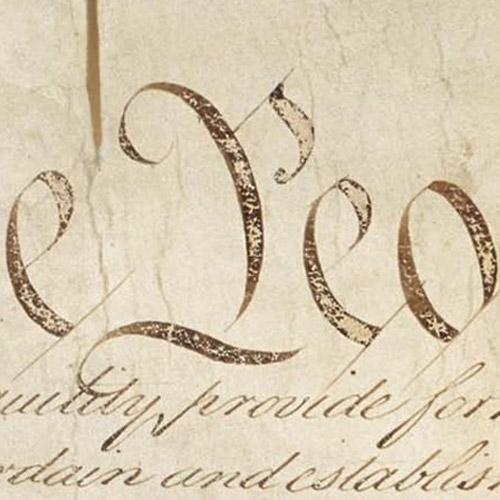 e Peo
quility, provide for
rdain and establis